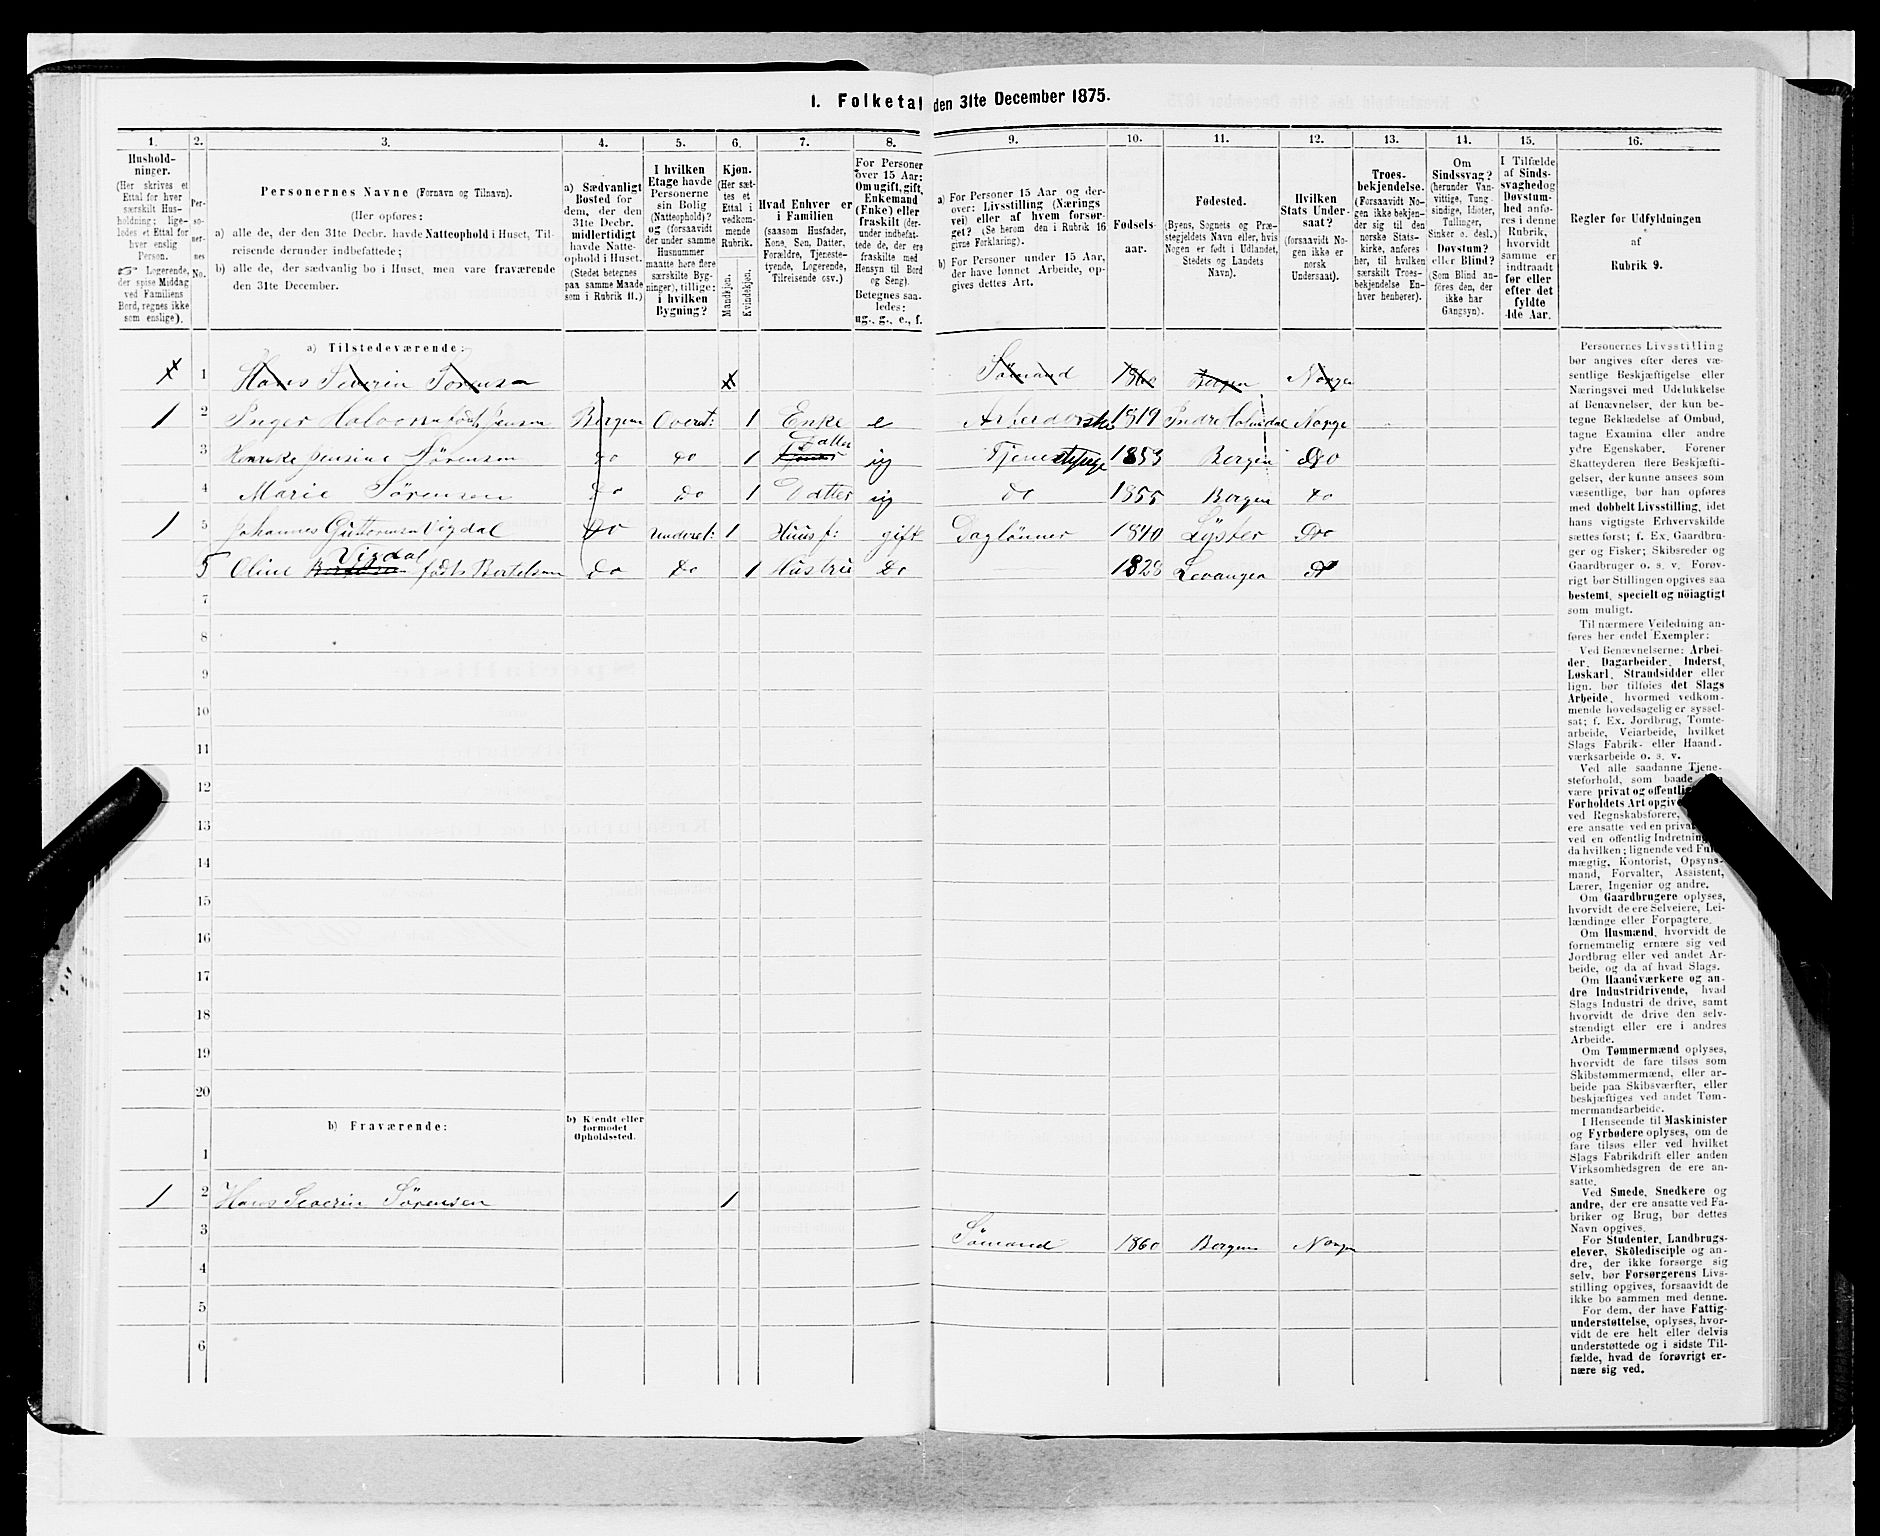 1. Folketal den 31te December 1875.
1. 2. 3. 4. 5. 6. 7. 8. 9. 10. 11. 12. 13. 14. 15. 16.
Hushold-
ninger.
(Her skrives et
Ettal for hver
særskilt Hus-
holdning; lige-
ledes et Ettal for
hver enslig
Person.
☞ Logerende,
der spise Middag
ved Familiens
Bord, regnes ikke
som enslige).
Per-
so-
ner-
nes
No.
Personernes Navne (Fornavn og Tilnavn).
(Her opføres:
a) alle de, der den 31te Decbr. havde Natteophold i Huset, Til-
reisende derunder indbefattede;
b) alle de, der sædvanlig bo i Huset, men vare fraværende
den 31te December.
a) Sædvanligt
Bosted for
dem, der den
31te Decbr.
midlertidigt
havde Natte-
ophold i Huset.
(Stedet betegnes
paa samme Maade
som i Rubrik 11.)
I hvilken
Etage havde
Personerne
sin Bolig
(Natteophold)?
og (forsaavidt
der under samme
Husnummer
maatte høre flere
særskilte Byg-
ninger), tillige:
i hvilken
Bygning?
Kjøn.
(Her sæt-
tes et
Ettal i
vedkom-
mende
Rubrik.
Mandkjøn.
Kvindekjøn.
Hvad Enhver er
i Familien
(saasom Husfader,
Kone, Søn, Datter,
Forældre, Tjeneste-
tyende, Logerende,
Tilreisende csv.)
For Personer
over 15 Aar:
Om ugift, gift,
Enkemand
(Enke) eller
fraskilt (der-
under indbefat-
tede de, der ere
fraskilte med
Hensyn til Bord
og Seng).
Betegnes saa-
ledes:
ug., g., e., f.
a) For Personer 15 Aar og der-
over: Livsstilling (Nærings
vei) eller af hvem forsør-
get? (Se herom den i Rubrik 16
givne Forklaring).
b) For Personer under 15 Aar,
der have lønnet Arbeide, op-
gives dettes Art.
Fødsels-
aar.
Fødested.
(Byens, Sognets og Præ-
stegjeldets Navn eller, hvis
Nogen er født i Udlandet,
Stedets og Landets
Navn).
Hvilken
Stats Under-
saat?
(forsaavidt No-
gen ikke er
norsk
Undersaat).
Troes-
bekjendelse.
(Forsaavidt No-
gen ikke bekjen-
der sig til den
norske Stats-
kirke, anføres
her, til hvilken
særskilt Troes-
bekjendelse En-
hver henhører).
Om
Sindssvag?
(herunder Van-
vittige, Tung-
sindige, Idioter,
Tullinger,
Sinker o. desl.)
Døvstum?
eller Blind?
(Som Blind an-
føres den, der
ikke har
Gangsyn).
I Tilfælde
af Sinds-
svaghed og
Døvstum-
hed anfø-
res i denne
Rubrik,
hvorvidt
samme er
indtraadt
før eller
efter det
fyldte
4de Aar.
Regler for Udfyldningen
af
Rubrik 9.
a) Tilstedeværende:
1 Hans Severin Sørensen Sømand 1860 Bergen Norge
1 2 Inger født Jensen Bergen Overet: 1 Enke e 1819 Norge
3 Jensine Sørensen do do 1 Datter ug 1853 Bergen Do
4 Marie Sørensen Do Do 1 Datter ug do 1855 Bergen do
1 5 Johannes Guttormsen Vigdal Do underet: 1 Huusf: gift Daglønner 1840 Lyster Do
Vigdal
5 Oline født Bertelsen Do Do 1 Hustru Do 1828 Levanger
7
8
9
10
11
12
13
14
15
16
17
18
19
20
b) Fraværende:
b) Kjendt eller
formodet
Opholdssted.
1
1 2 Hans Severin Sørensen 1
3 Sømand 1860 Bergen Norge
4
5
6
Personernes Livsstilling
bør angives efter deres væ-
sentlige Beskjæftigelse eller
Næringsvei med Udelukkelse
af Benævnelser, der kun be-
tegne Beklædelse af Ombud,
tagne Examina eller andre
ydre Egenskaber. Forener
Skatteyderen flere Beskjæfti-
gelser, der kunne ansees som
væsentlige, bør han opføres
med dobbelt Livsstilling, idet
hans vigtigste Erhvervskilde
sættes først; f. Ex. Gaardbru-
ger og Fisker; Skibsreder og
Gaardbruger o. s. v. Forøv-
rigt bør Stillingen opgives saa
bestemt, specielt og nöiagtigt
som muligt.
Til nærmere Veiledning an-
føres her endel Exempler:
Ved Benævnelserne: Arbei-
der, Dagarbeider, Inderst,
Løskarl, Strandsidder eller
lign. bør tilføies det Slags
Arbeide, hvormed vedkom-
mende hovedsagelig er syssel-
sat; f. Ex. Jordbrug, Tomte-
arbeide, Veiarbeide, hvilket
Slags Fabrik- eller Haand-
værksarbeide o. s. v.
Ved alle saadanne Tjene-
steforhold, som baade
være privat og offentlig
Forholdets Art opgives
ved Regnskabsførere,
ere ansatte ved en privat
ved en offentlig Indretning
da hvilken; lignende ved Ful-
mægtig, Kontorist, Opsyns-
mand, Forvalter, Assistent,
Lærer, Ingeniør og andre.
Om Gaardbrugere oplyses,
hvorvidt de ere Selveiere, Lei-
lændinge eller Forpagtere.
Om Husmænd, hvorvidt de
fornemmelig ernære sig ved
Jordbrug eller ved andet Ar-
beide, og da af hvad Slags.
Om Haandværkere og an-
dre Industridrivende, hvad
Slags Industri de drive, samt
hvorvidt de drive den selv-
stændigt eller ere i andres
Arbeide.
Om Tømmermænd oplyses,
hvorvidt de fare tilsøs som
Skibstømmermænd, eller ar-
beide paa Skibsværfter, eller
beskjæftiges ved andet Tøm-
mermandsarbeide.
I Henseende til Maskinister
og Fyrbødere oplyses, om de
fare tilsøs eller ved hvilket
Slags Fabrikdrift eller anden
Virksomhedsgren de ere an-
satte.
Ved Smede, Snedkere og
andre, der ere ansatte ved Fa-
briker og Brug, bør dettes
Navn opgives.
For Studenter, Landbrugs-
elever, Skoledisciple og an-
dre, der ikke forsørge sig
selv, bør Forsørgerens Livs-
stilling opgives, forsaavidt de
ikke bo sammen med denne.
For dem, der have Fattig-
understøttelse, oplyses, hvor-
vidt de ere helt eller delvis
understøttede og i sidste Til-
fælde, hvad de forøvrigt er-
nære sig ved.